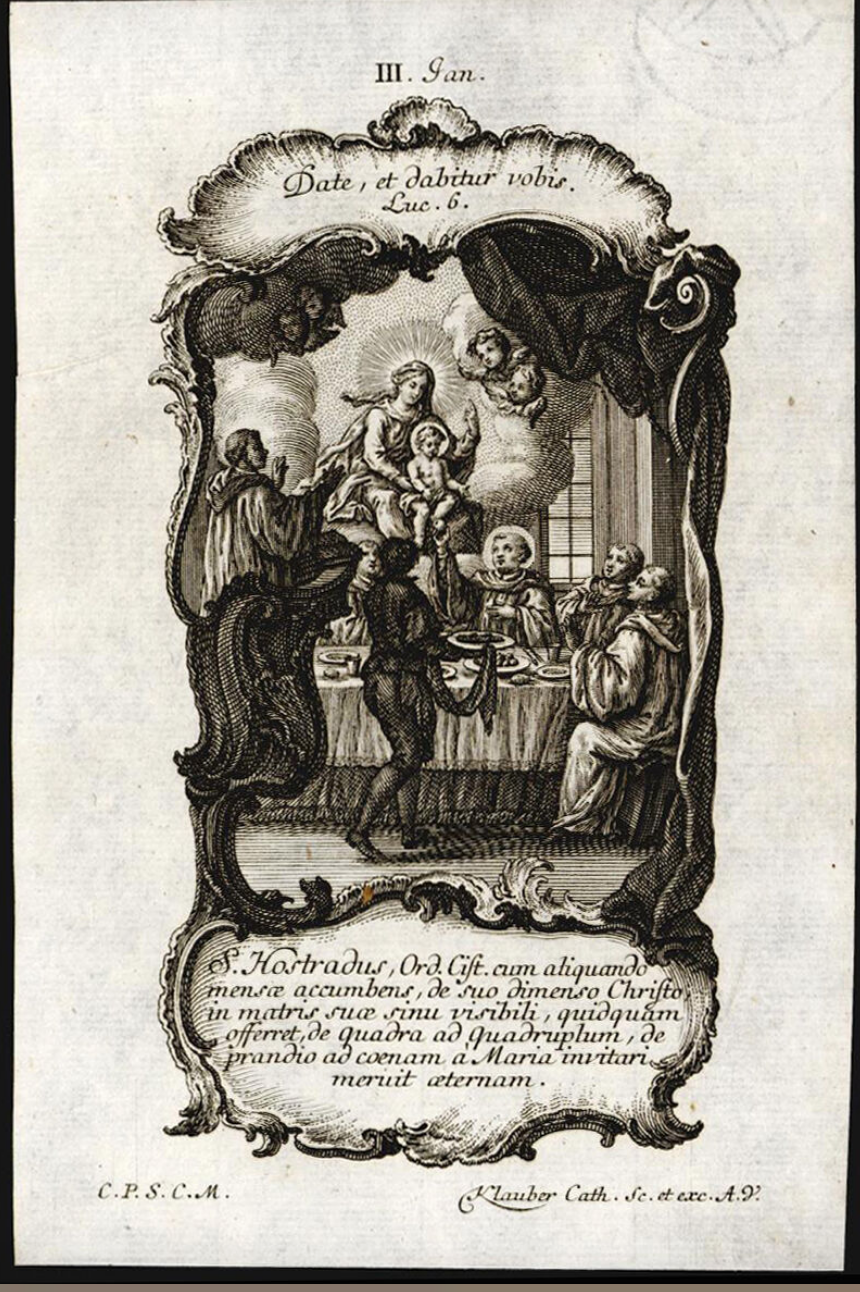 III. Jan.
Date, et dabitur vobis.
Luc. 6.
S. Hostradus, Ord. Cist. cum aliquando
mensæ accumbens, de suo dimenso Christo,
in matris suæ sinu visibili, quidquam
offerret, de quadra ad quadruplum, de
prandio ad coenam a Maria invitari
meruit æternam.
C. P. S. C. M.
Klauber Cath. Sc. et exc. A. V.